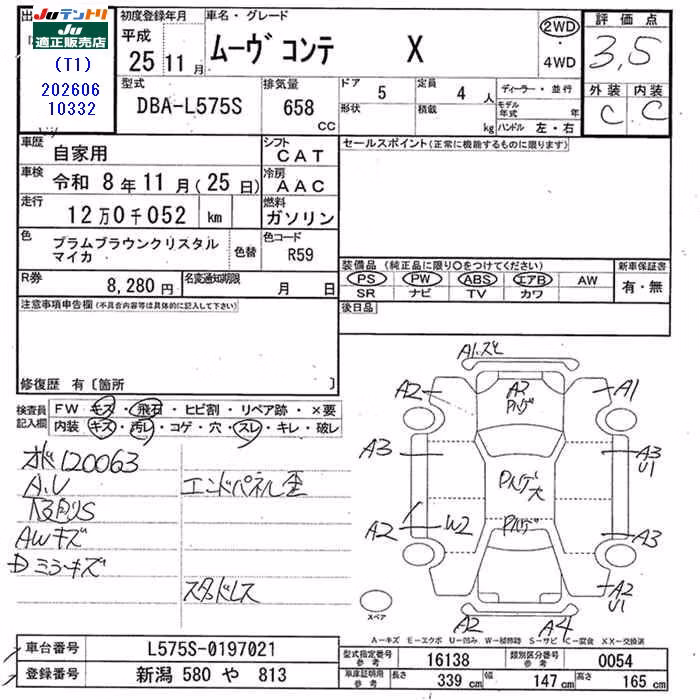 出
JUテントリ
JU
適正販売店
(T1)
202606
10332
初度登録年月
平成
25年11月
車名・グレード
ムーヴ コンテ X
2WD
・
4WD
評価点
3,5
外装 内装
C C
型式
DBA-L575S
排気量
658
CC
ドア
5
形状
定員
4人
積載
kg
ディーラー・並行
モデル年式 年
ハンドル 左・右
車歴
自家用
シフト
CAT
車検
令和 8年11月(25日)
冷房
AAC
走行
12万0千052 km
燃料
ガソリン
色
プラムブラウンクリスタル
マイカ
色替
色コード
R59
R券
8,280円
名変通知期限
月 日
セールスポイント(正常に機能するものに限ります)
装備品(純正品に限り○をつけてください)
PS PW ABS エアB AW
SR ナビ TV カワ
新車保証書
有・無
後日品
注意事項申告欄(不具合内容等は具体的に記入して下さい)
修復歴 有〔箇所 〕
検査員
記入欄
FW・キズ・飛石・ヒビ割・リペア跡・×要
内装・キズ・汚レ・コゲ・穴・スレ・キレ・破レ
120063
A,V
エンドパネル歪
AWキズ
Dミラーキズ
スタッドレス
A1
A2
A1
A3
A3
U1
A2
W2
A3
A2
U1
A2
A4
スペア
A-キズ E-エクボ U-凹み W-補修跡 S-サビ C-腐食 XX-交換済
車台番号
L575S-0197021
登録番号
新潟 580 や 813
型式指定番号
参考
16138
類別区分番号
参考
0054
車庫証明用
参考
長さ 339 cm
幅 147 cm
高さ 165 cm